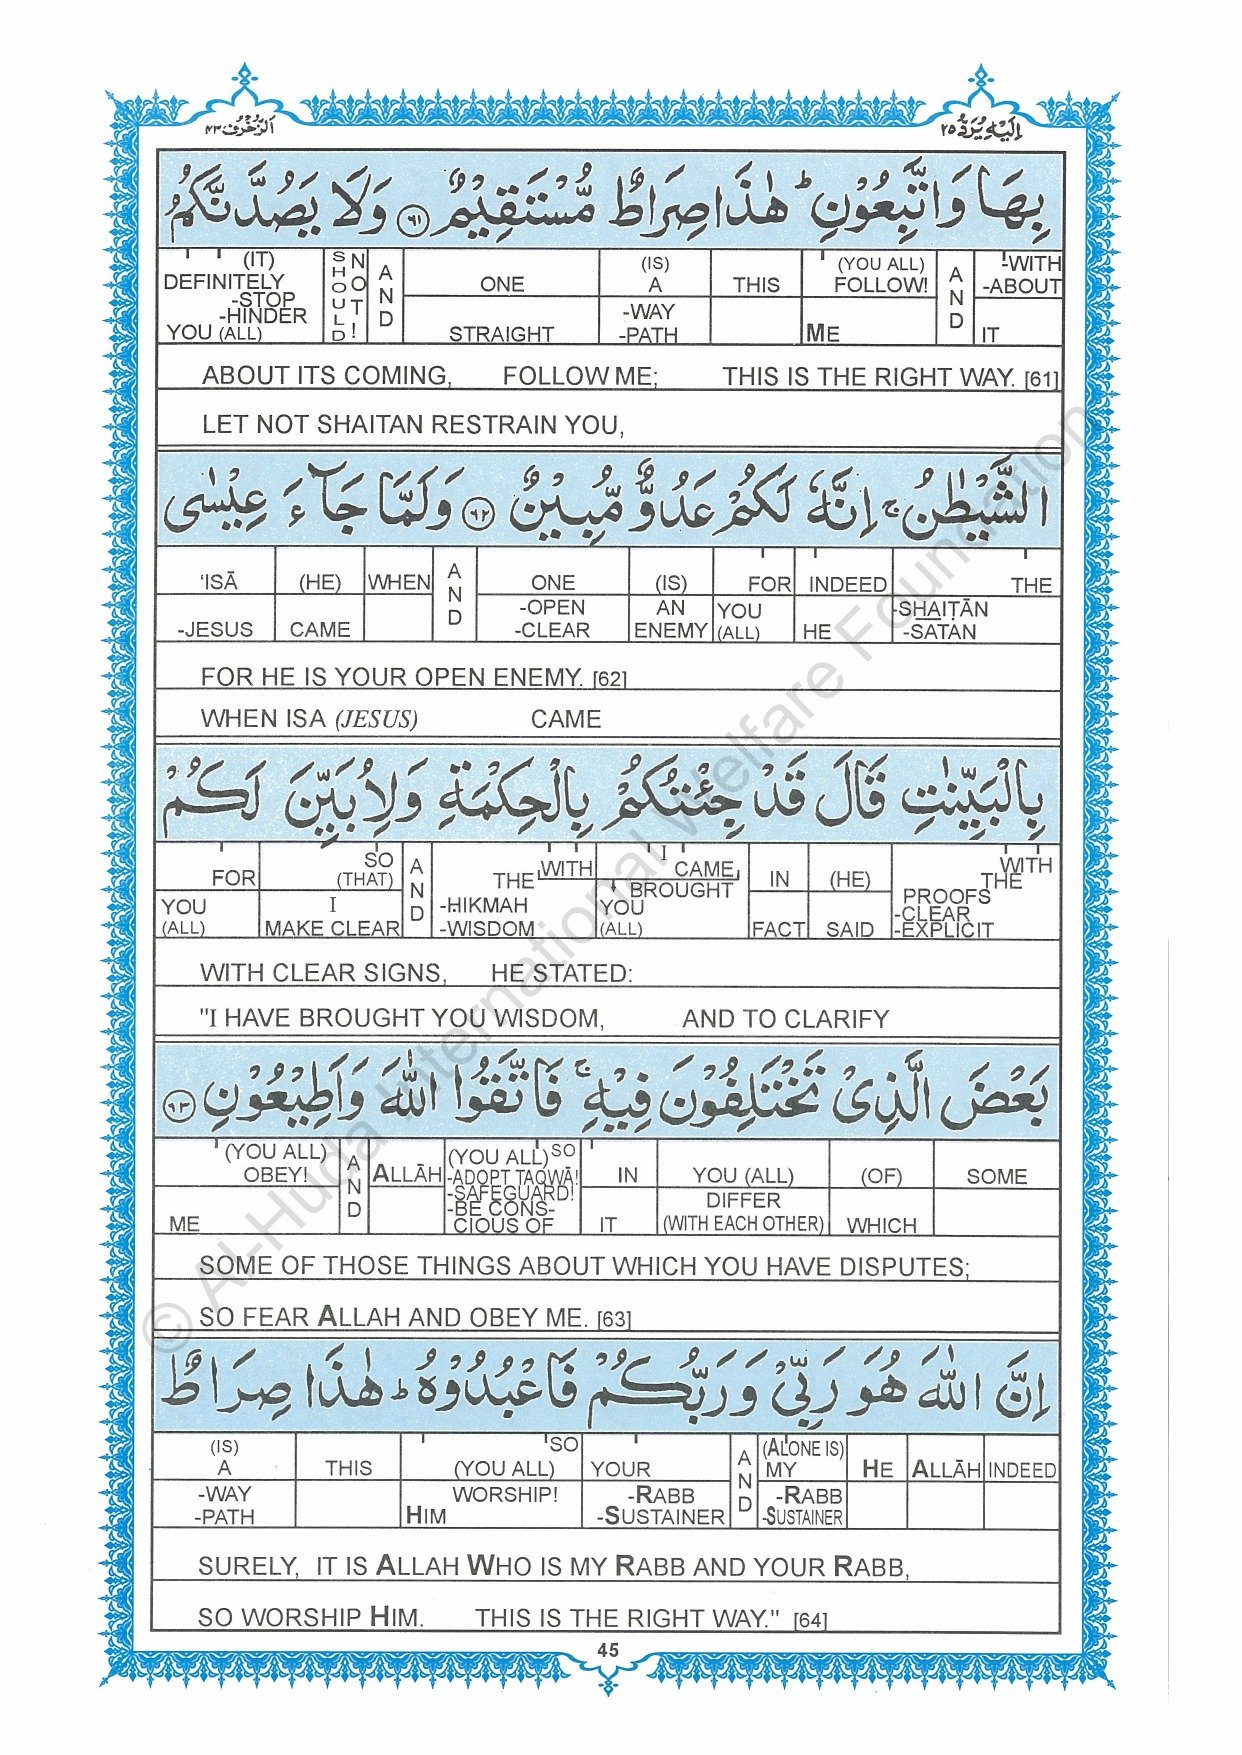 اَلزُّخْرُف ٤٣
اِلَيْهِ يُرَدُّ ٢٥
بِهَا وَاتَّبِعُوْنِ ؕ هٰذَا صِرَاطٌ مُّسْتَقِيْمٌ ٦١ وَلَا يَصُدَّنَّكُمُ
(IT) DEFINITELY -STOP -HINDER YOU (ALL)
SHOULD NOT!
AND
ONE STRAIGHT
(IS) A -WAY -PATH
THIS
(YOU ALL) FOLLOW! ME
AND
-WITH -ABOUT IT
ABOUT ITS COMING, FOLLOW ME; THIS IS THE RIGHT WAY. [61]
LET NOT SHAITAN RESTRAIN YOU,
الشَّيْطٰنُ ۚ اِنَّهٗ لَكُمْ عَدُوٌّ مُّبِيْنٌ ٦٢ وَلَمَّا جَآءَ عِيْسٰى
'ISĀ -JESUS
(HE) CAME
WHEN
AND
ONE -OPEN -CLEAR
(IS) AN ENEMY
FOR YOU (ALL)
INDEED HE
THE -SHAIṬĀN -SATAN
FOR HE IS YOUR OPEN ENEMY. [62]
WHEN ISA (JESUS) CAME
بِالْبَيِّنٰتِ قَالَ قَدْ جِئْتُكُمْ بِالْحِكْمَةِ وَلِاُبَيِّنَ لَكُمْ
FOR YOU (ALL)
SO (THAT) I MAKE CLEAR
AND
WITH THE -HIKMAH -WISDOM
I CAME, BROUGHT YOU (ALL)
IN FACT
(HE) SAID
WITH THE PROOFS -CLEAR -EXPLICIT
WITH CLEAR SIGNS, HE STATED:
"I HAVE BROUGHT YOU WISDOM, AND TO CLARIFY
بَعْضَ الَّذِيْ تَخْتَلِفُوْنَ فِيْهِ ۚ فَاتَّقُوا اللّٰهَ وَاَطِيْعُوْنِ ٦٣
(YOU ALL) OBEY! ME
AND
ALLĀH
SO (YOU ALL) -ADOPT TAQWĀ! -SAFEGUARD! -BE CONS- CIOUS OF
IN IT
YOU (ALL) DIFFER (WITH EACH OTHER)
(OF) WHICH
SOME
SOME OF THOSE THINGS ABOUT WHICH YOU HAVE DISPUTES;
SO FEAR ALLAH AND OBEY ME. [63]
اِنَّ اللّٰهَ هُوَ رَبِّيْ وَرَبُّكُمْ فَاعْبُدُوْهُ ؕ هٰذَا صِرَاطٌ
(IS) A -WAY -PATH
THIS
SO (YOU ALL) WORSHIP! HIM
YOUR -RABB -SUSTAINER
AND
(ALONE IS) MY -RABB -SUSTAINER
HE
ALLĀH
INDEED
SURELY, IT IS ALLAH WHO IS MY RABB AND YOUR RABB,
SO WORSHIP HIM. THIS IS THE RIGHT WAY." [64]
45
© Al-Huda International Welfare Foundation